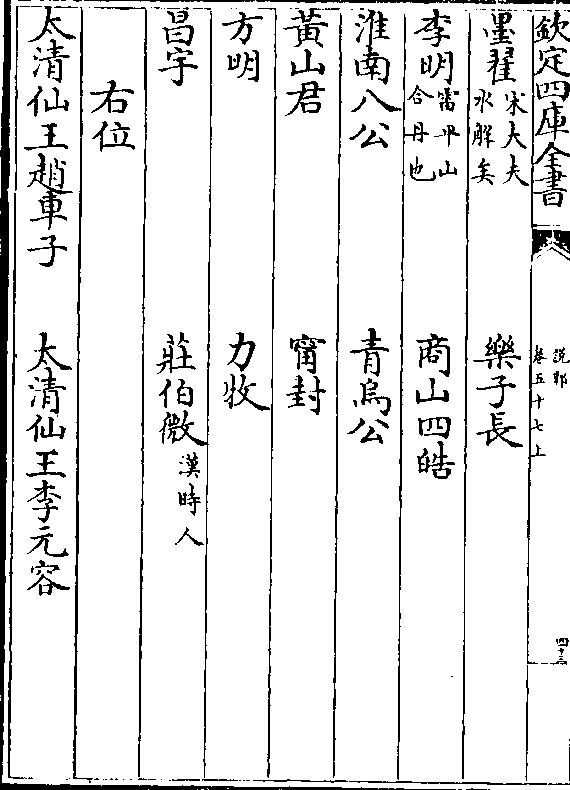 欽定四庫全書
說郛
卷五十七上
四十三
墨翟 宋大夫水解矣 樂子長
李明 雷平山合丹也 商山四皓
淮南八公 青烏公
黃山君 甯封
方明 力牧
昌宇 莊伯微 漢時人
右位
太清仙王趙車子 太清仙王李元容